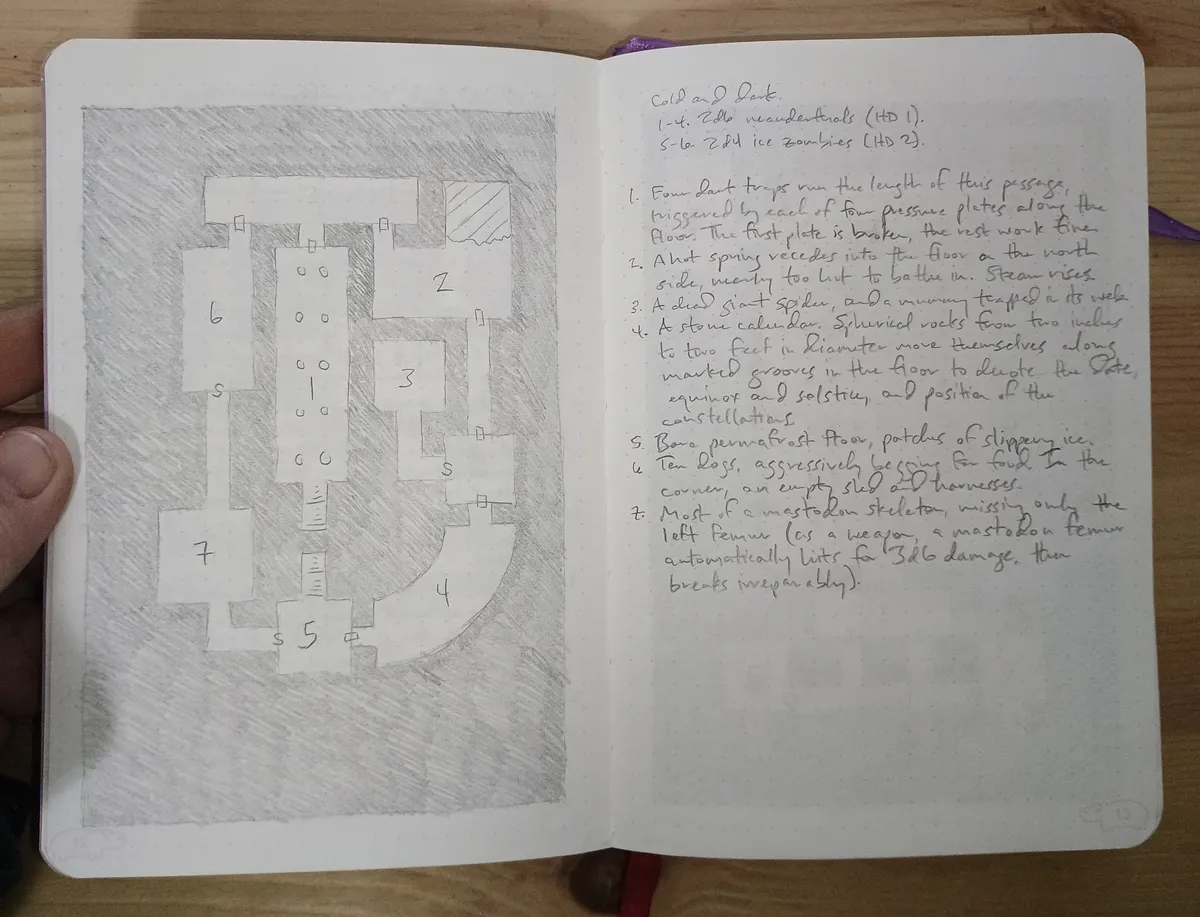 6
2
1
3
S
S
7
4
S
5
12
Cold and dark.
1-4. 2d6 neanderthals (HD 1).
5-6. 2d4 ice zombies (HD 2).
1. Four dart traps run the length of this passage,
triggered by each of four pressure plates along the
floor. The first plate is broken, the rest work fine.
2. A hot spring recedes into the floor on the north
side, nearly too hot to bathe in. Steam rises.
3. A dead giant spider, and a mummy trapped in its web.
4. A stone calendar. Spherical rocks from two inches
to two feet in diameter move themselves along
marked grooves in the floor to denote the date,
equinox and solstice, and position of the
constellations.
5. Bare permafrost floor, patches of slippery ice.
6. Ten dogs, aggressively begging for food. In the
corner, an empty sled and harnesses.
7. Most of a mastodon skeleton, missing only the
left femur (as a weapon, a mastodon femur
automatically hits for 3d6 damage, then
breaks irreparably).
13